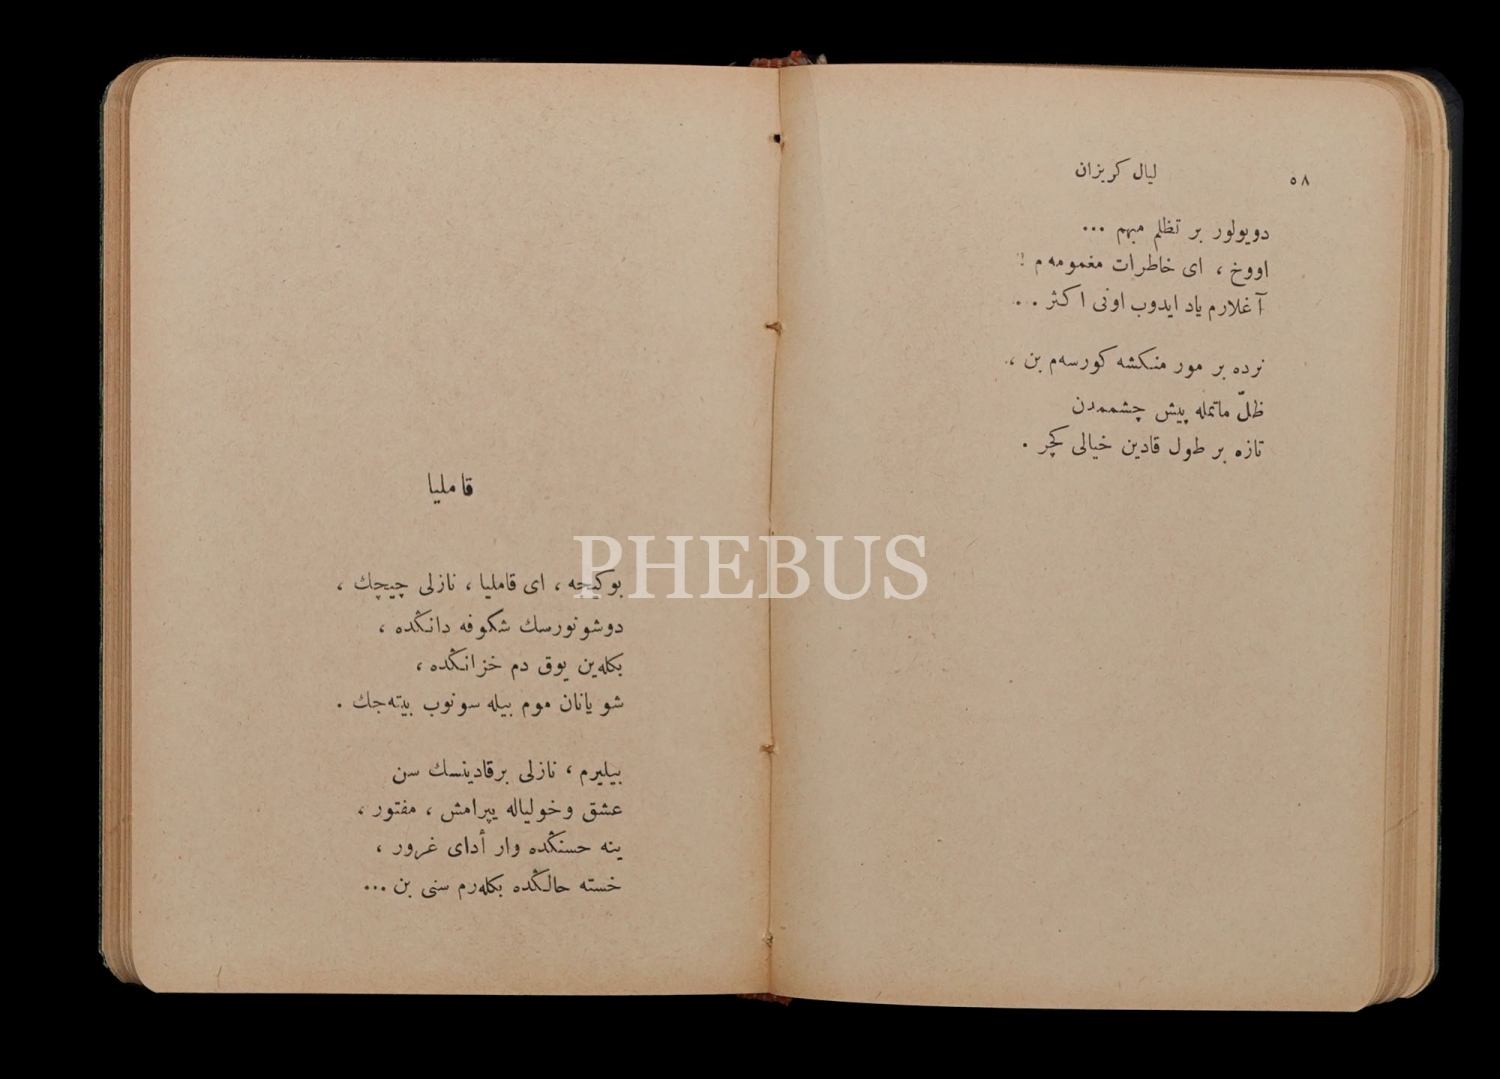 ٥٨
ليال كريزان
دويولور بر تظلم مبهم ...
اووخ ، اى خاطرات مغمومه‌م !
آغلارم ياد ايدوب اونى اكثر ..
نرده بر مور منكشه كورسه‌م بن ،
ظلّ ماتمله پيش چشممدن
تازه بر طول قادين خيالى كچر .
قامليا
بو كيجه ، اى قامليا ، نازلى چيچك ،
دوشونورسك شكوفه دانڭده ،
بكله‌ين يوق دم خزانڭده ،
شو يانان موم بيله سونوب بيته‌جك .
بيليرم ، نازلى بر قادينسك سن
عشق و خولياله يپرامش ، مفتور ،
ينه حسنڭده وار أداى غرور ،
خسته حالڭده بكله‌رم سنى بن ...
PHEBUS